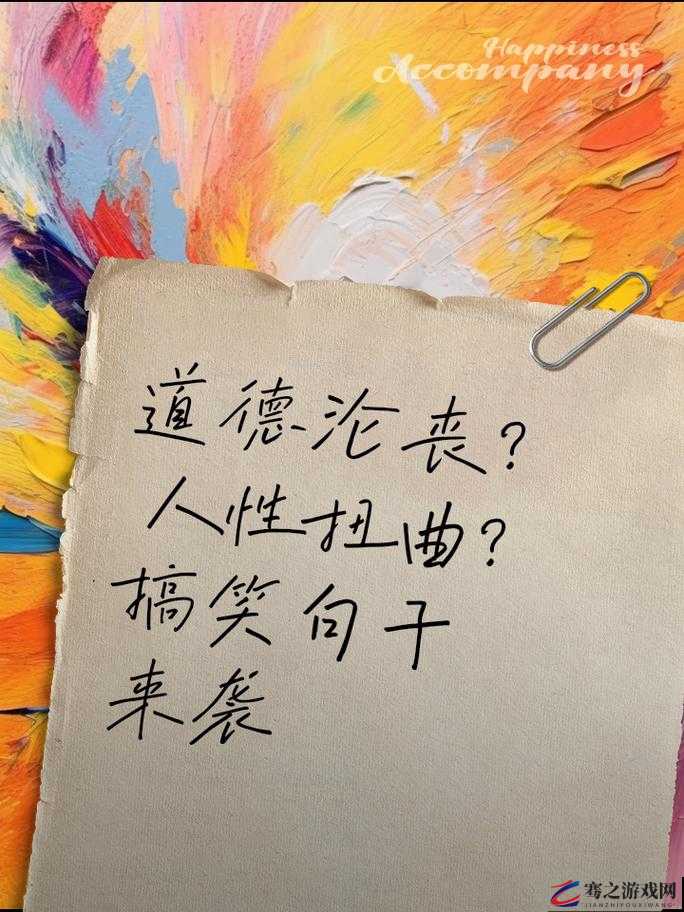 Happiness
Accompany
道德沦丧?
人性扭曲?
搞笑句子
来袭
骞之游戏网
JIANZHIYOUXIWANG